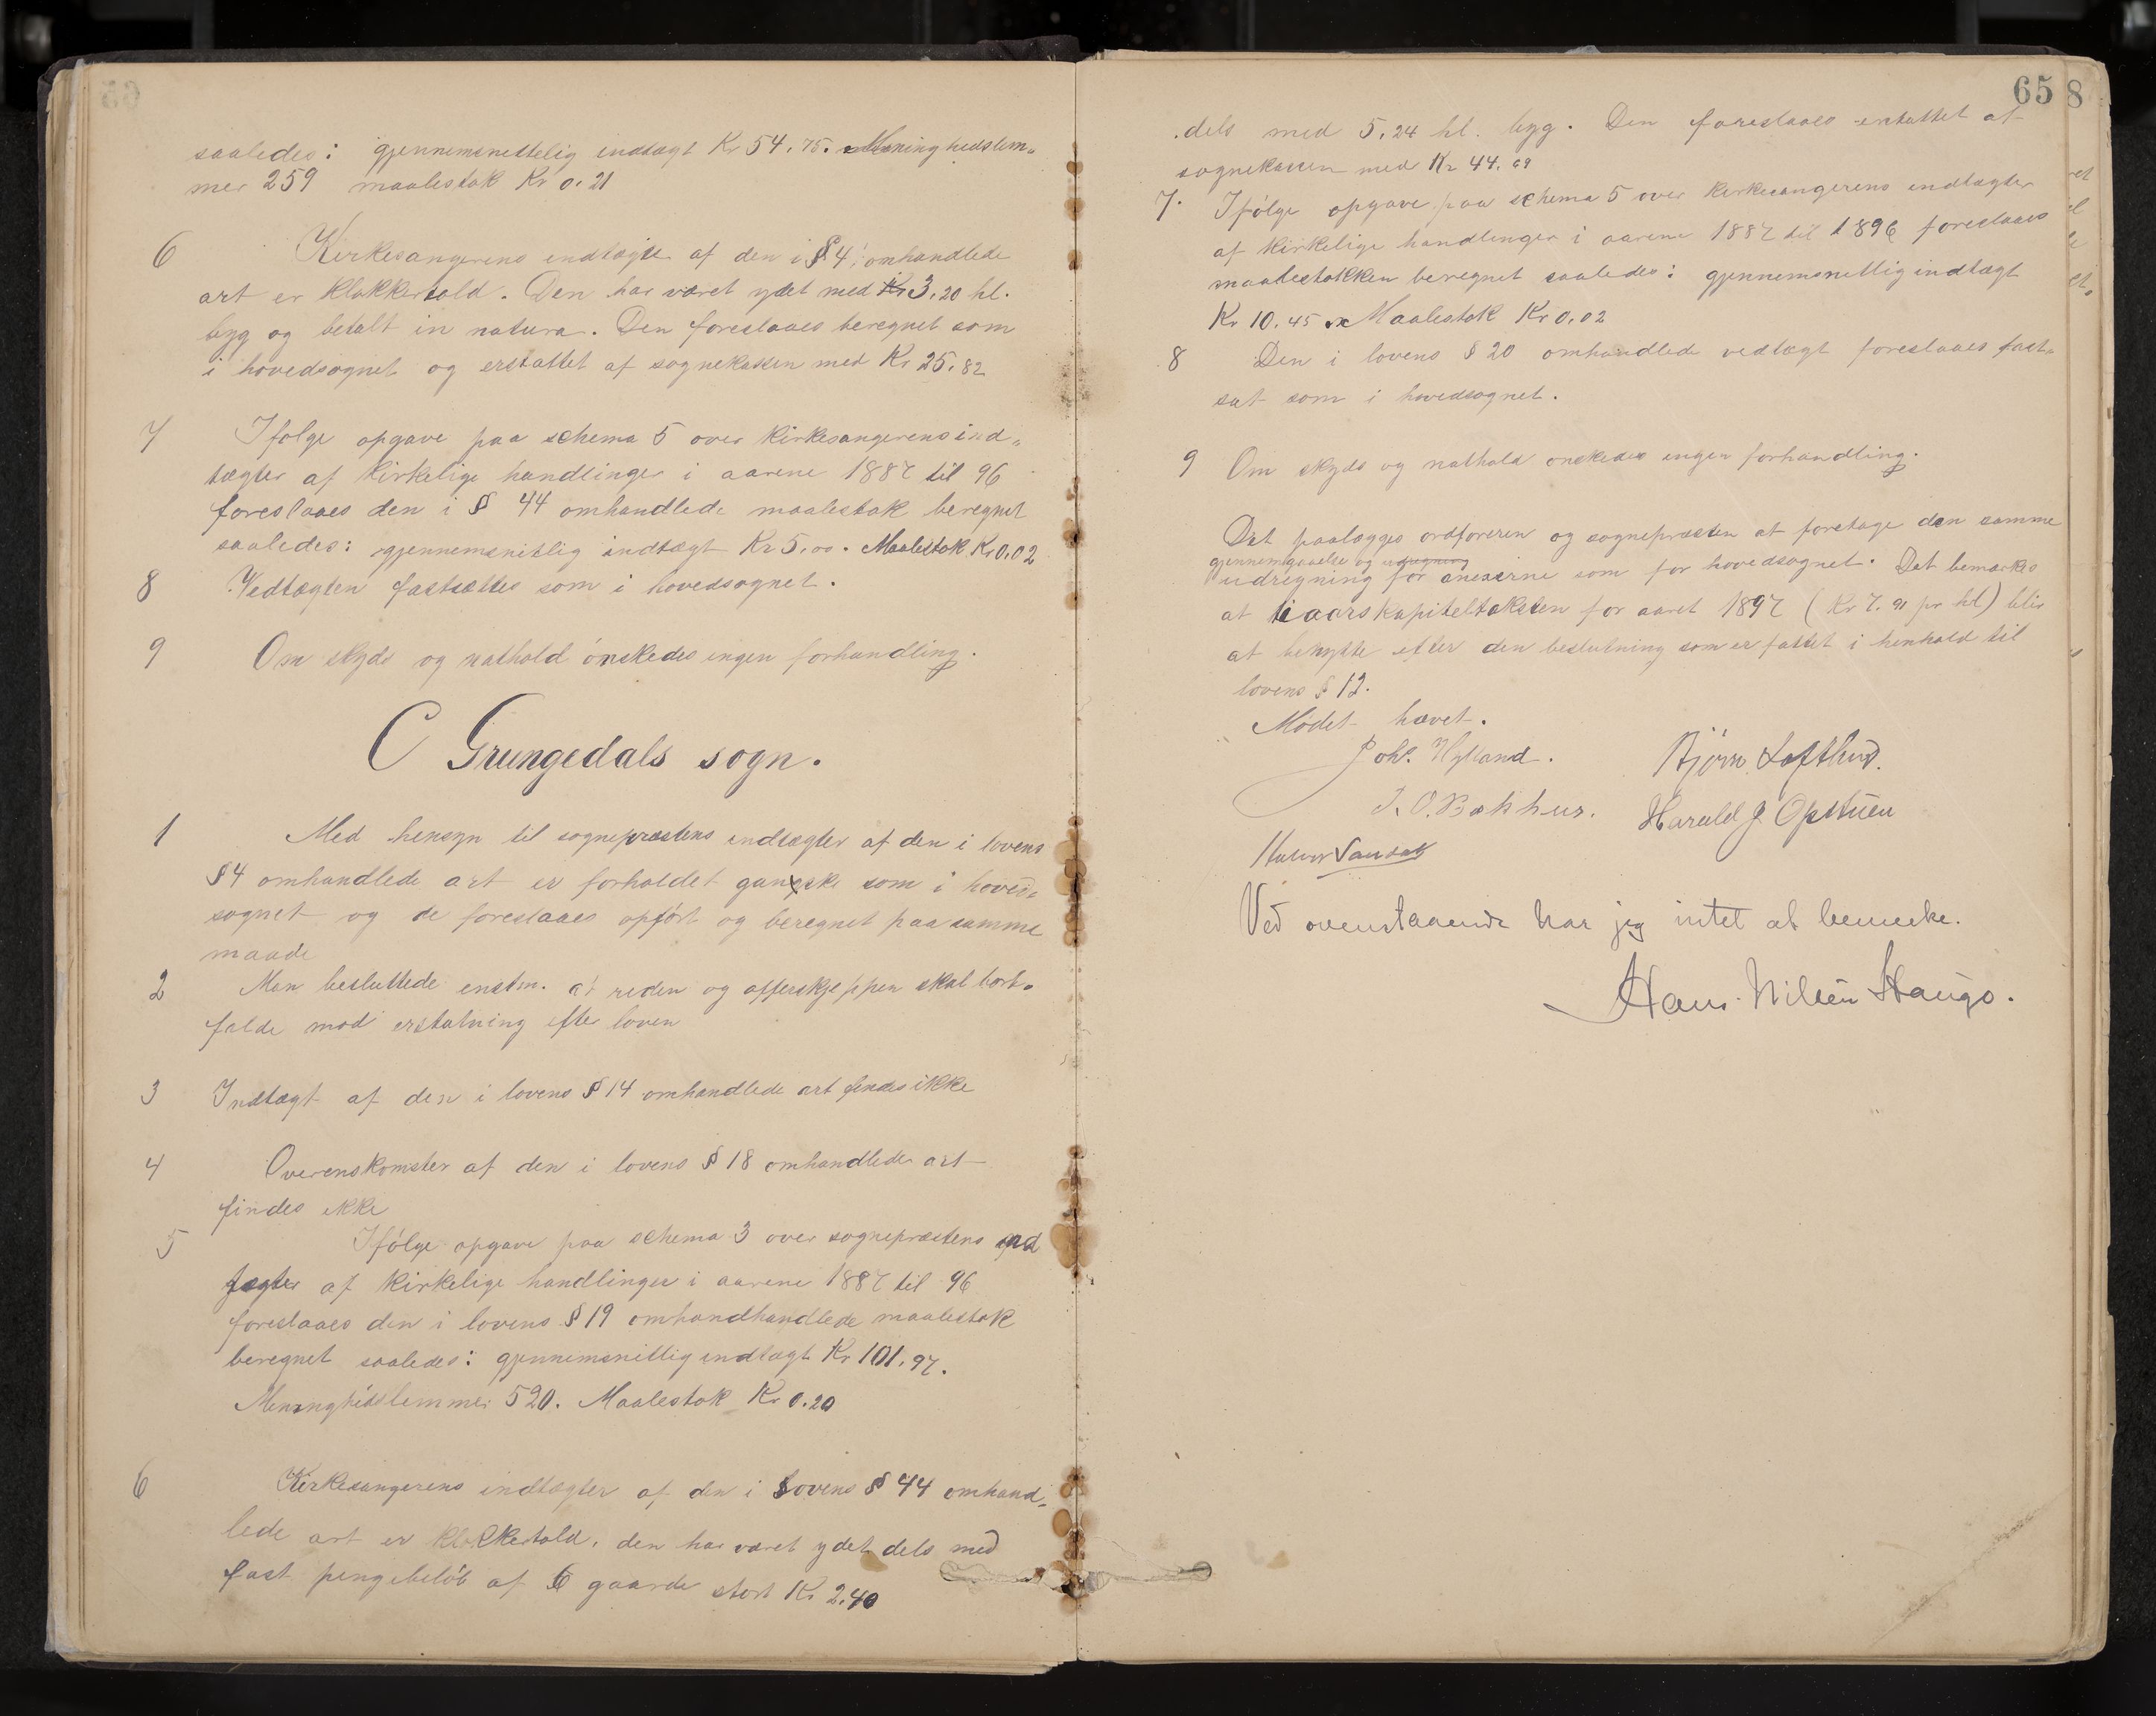 saaledes: gjennemsnettelig indtægt Kr 54.75. Meninghedslem„
mer 259 maalestok Kr 0.21
6 Kirkesangerens indtægter af den i § 4 omhandlede
art er klokkertold. Den har været ydet med 3,20 hl.
byg og betalt in natura. Den foreslaaes beregnet som
i hovedsognet og erstattet af sognekassen med Kr 25.82
7 Ifølge opgave paa schema 5 over kirkesangerens ind„
tægter af kirkelige handlinger i aarene 1887 til 96
foreslaaes den i § 44 omhandlede maalestok beregnet
saaledes: gjennemsnitlig indtægt Kr 5,00. Maalestok Kr 0,02
8 Vedtægten fastsættes som i hovedsognet.
9 Om skyds og nathold ønskedes ingen forhandling.
C Grungedals sogn.
1 Med hensyn til sognepræstens indtægter af den i lovens
§ 4 omhandlede art er forholdet ganske som i hoved„
sognet og de foreslaaes opført og beregnet paa samme
maade
2 Man besluttede enstm. at reden og offerskjeppen skal bort„
falde mod erstatning efter loven
3 Indtægt af den i lovens § 14 omhandlede art findes ikke
4 Overenskomster af den i lovens § 18 omhandlede art
findes ikke
5 Ifølge opgave paa schema 3 over sogneprestens ind
tægter af kirkelige handlinger i aarene 1887 til 96
foreslaaes den i lovens § 19 omhandhandlede maalestok
beregnet saaledes: gjennemsnitlig indtægt Kr 101.97.
Meninghedslemmer 520. Maalestok Kr 0.20
6 Kirkesangerens indtægter af den i Lovens § 44 omhand„
lede art er klokkertold, den har været ydet dels med
fast pengebeløb af 6 gaarde stort Kr 2.40
65 8
dels med 5.24 hl. byg. Den foreslaaes erstattet af
sognekassen med Kr 44.69
7. Ifølge opgave paa schema 5 over kirkesangerens indtægter
af kirkelige handlinger i aarene 1887 til 1896 foreslaaes
maalestokken beregnet saaledes: gjennemsnitlig indtægt
Kr 10.45 Maalestok Kr 0.02
8 Den i lovens § 20 omhandlede vedtægt foreslaaes fast„
sat som i hovedsognet.
9 Om skyds og nathold ønskedes ingen forhandling.
Det paalægges ordføreren og sognepræsten at foretage den samme
gjennemgaaelse og udregning
udregning for anexerne som for hovedsognet. Det bemærkes
at tiaarskapiteltaksten for aaret 1897 (Kr 7.91 pr hl) blir
at benytte efter den beslutning som er fattet i henhold til
lovens § 12.
Mødet hævet.
Joh. Hylland. Bjørn Lofthus.
T. O. Bakhus. Harald G Opstuen
Halvor Vaa
Ved ovenstaaende har jeg intet at bemerke.
Hans Nilsen Hauge.